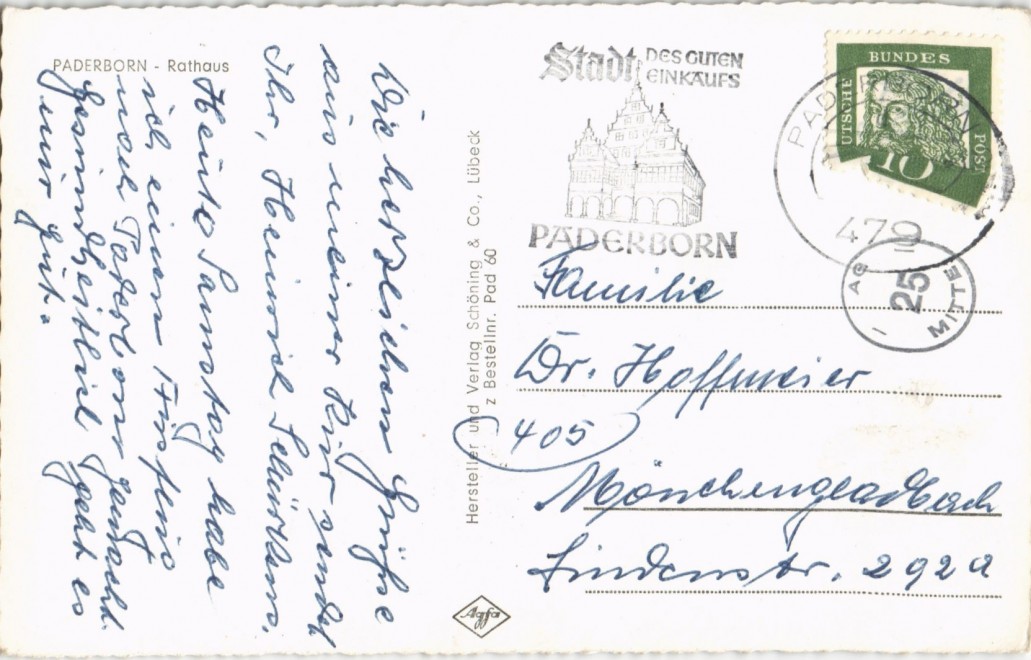 PADERBORN - Rathaus
Die herzlichen Grüße
aus meiner Kur sendet
Ihr, Heinrich
Heute Samstag habe
ich einen
nach gemacht.
Gesundheitlich geht es
mir gut.
Hersteller und Verlag Schöning & Co., Lübeck
z Bestellnr. Pad 60
Agfa
Stadt DES GUTEN
EINKAUFS
PADERBORN
BUNDES
UTSCHE
POST
10
PADERBORN
479
Ag
25
MITTE
Familie
Dr. Hoffmeier
405
Mönchengladbach
Lindenstr. 292a